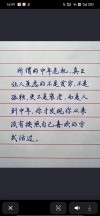 所谓的中年危机,真正
让人焦虑的不是贫穷,不是
孤独,更不是衰老,而是人
到中年,你才发现,你从来
没有按照自己喜欢的方
式活过。